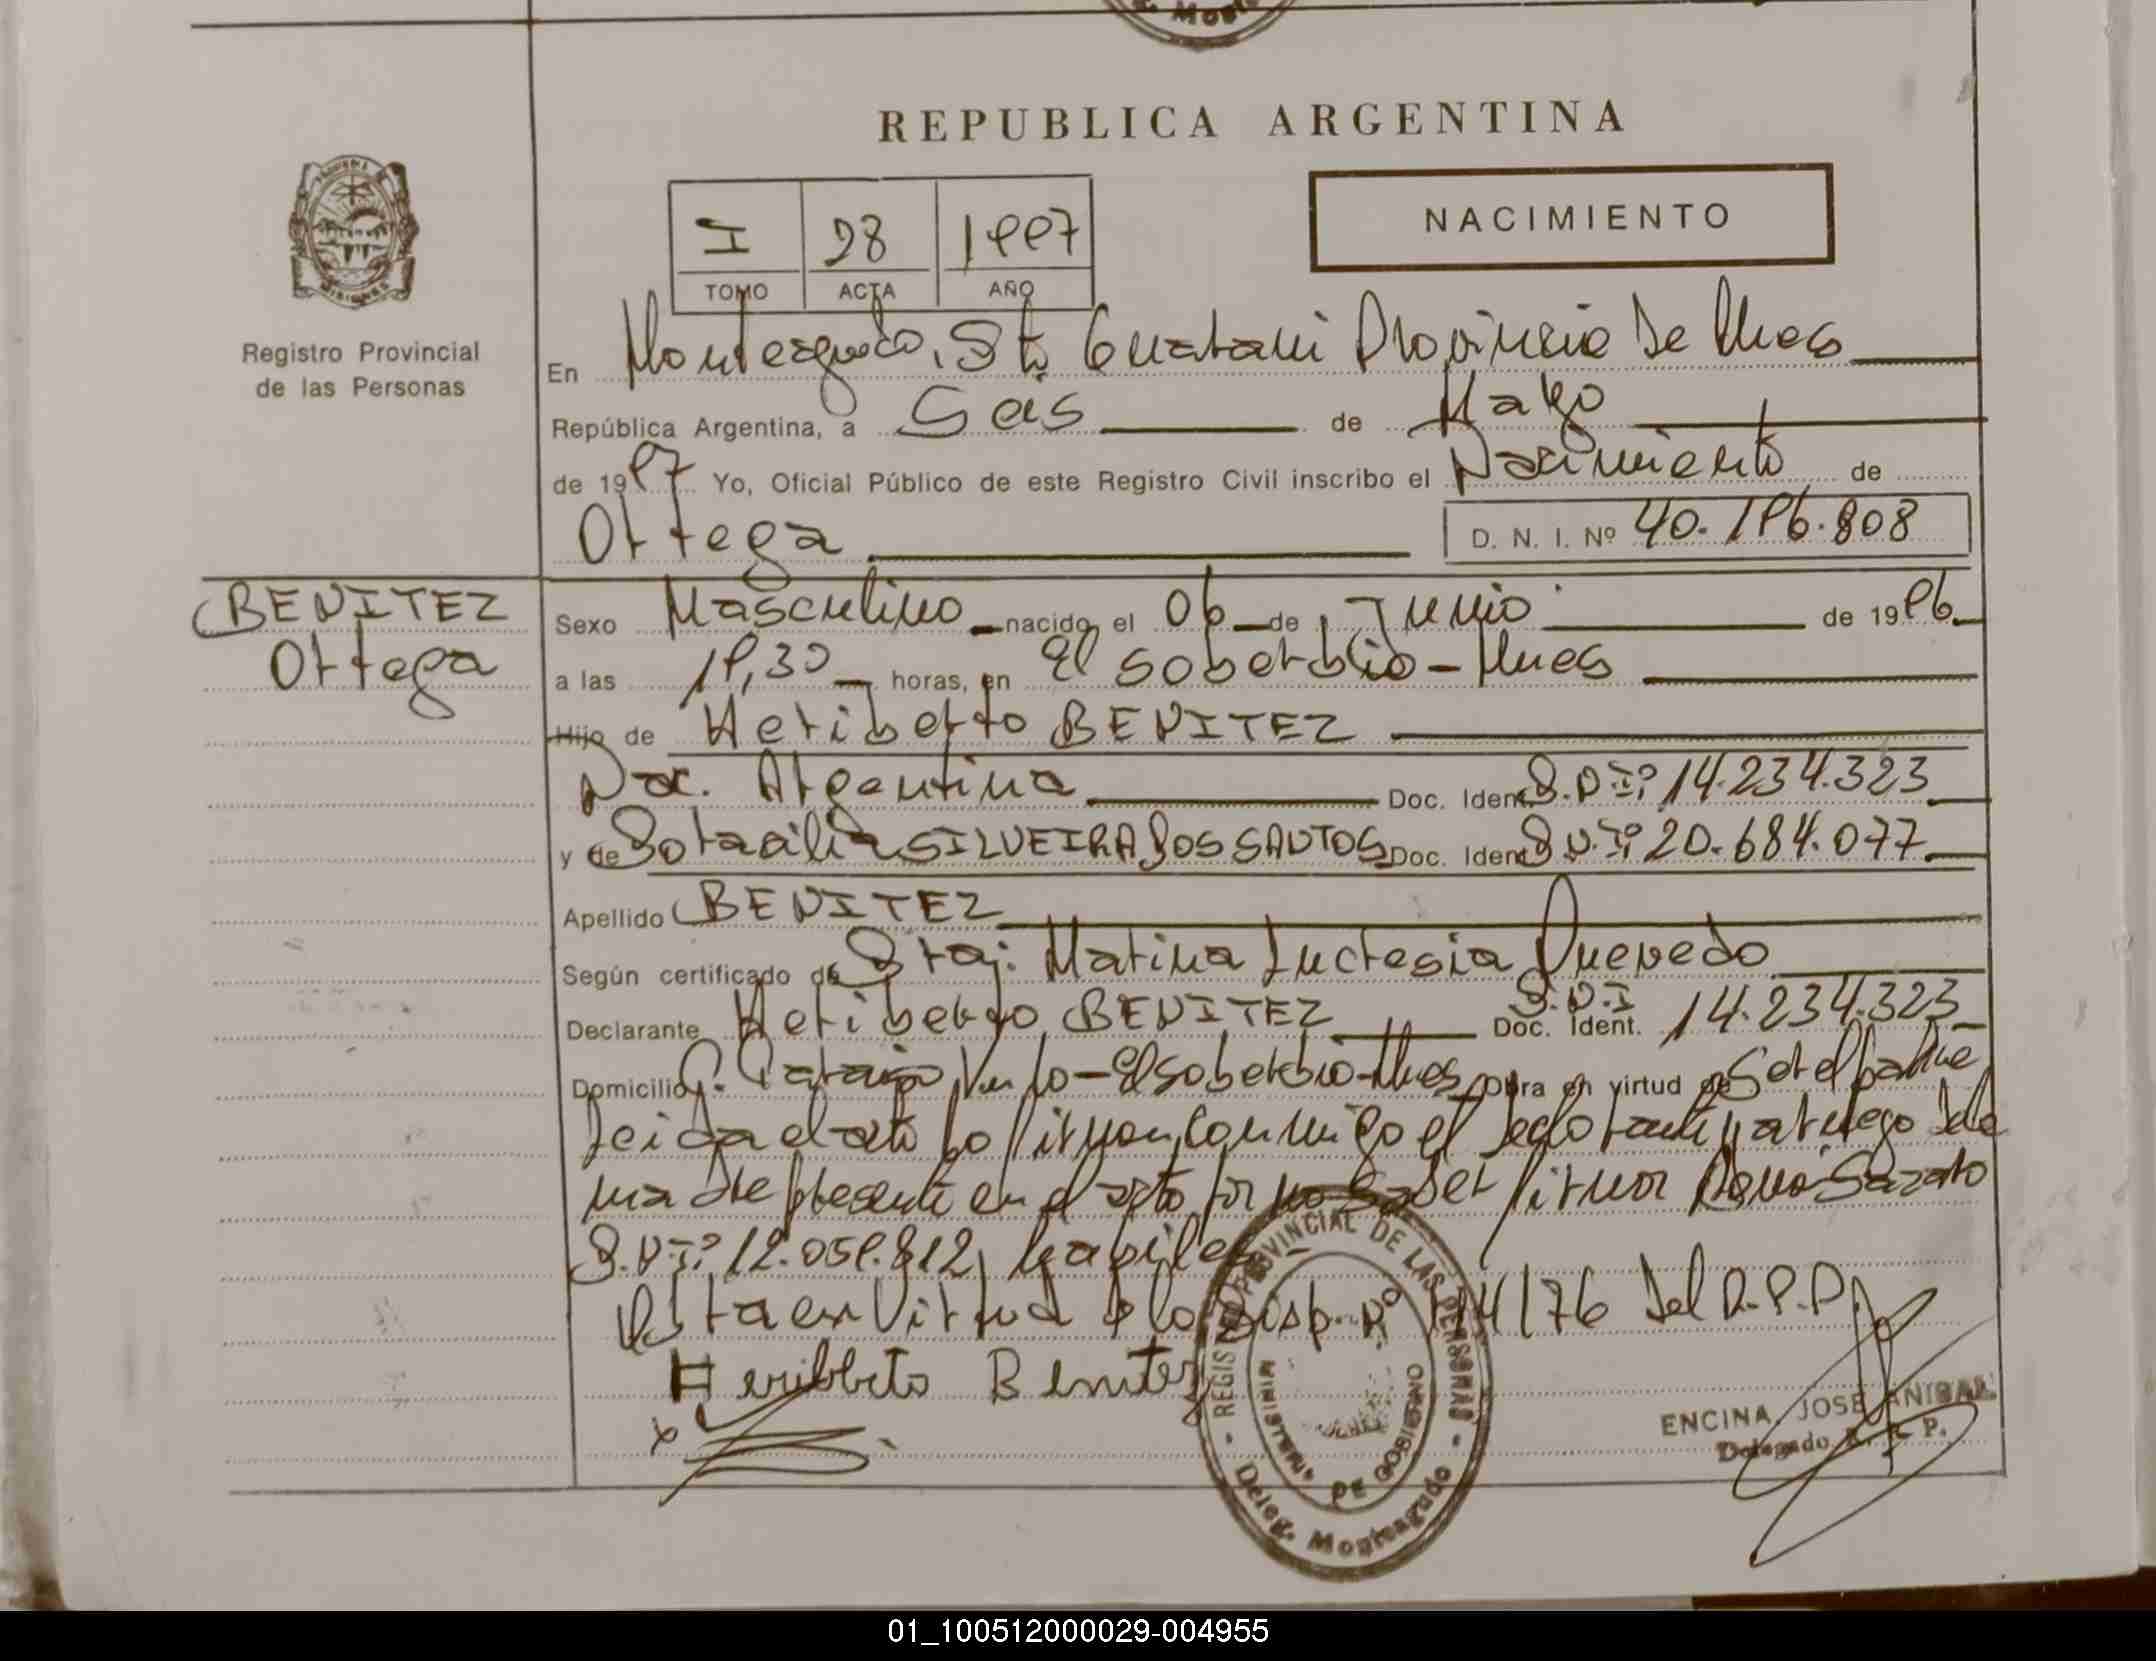 REPUBLICA ARGENTINA
NACIMIENTO
I 28 1997
TOMO ACTA AÑO
Registro Provincial
de las Personas
En Monteagudo, Dto Guarani Provincia De Mnes
República Argentina, a Seis de Mayo
de 1997 Yo, Oficial Público de este Registro Civil inscribo el Nacimiento de
Ortega
D. N. I. Nº 40.196.808
BENITEZ
Ortega
Sexo Masculino nacido el 06 de Junio de 1996
a las 19,30 horas, en El Soberbio - Mnes
Hijo de Heriberto BENITEZ
Nac. Argentina Doc. Ident. D.N.I: 14.234.323
y de Doracilia SILVEIRA DOS SANTOS Doc. Ident. D.N.I: 20.684.077
Apellido BENITEZ
Según certificado de Dra: Marina Lucresia Quevedo
Declarante Heriberto BENITEZ Doc. Ident. D.N.I 14.234.323
Domicilio - El Soberbio - Mnes obra en virtud de Ser el padre
Leida el acta lo firman conmigo el declarante y a ruego dela
madre presente en el acto por no saber firmar
D.N.I: 12.059.812,
Esta en Virtud Disp. Nº 114/76 Del R.P.P.
Heribberto Benitez
x
REGISTRO PROVINCIAL DE LAS PERSONAS
MINISTERIO DE GOBIERNO
Deleg. Monteagudo
ENCINA, JOSE ANIBAL
Delegado R. P. P.
01_100512000029-004955